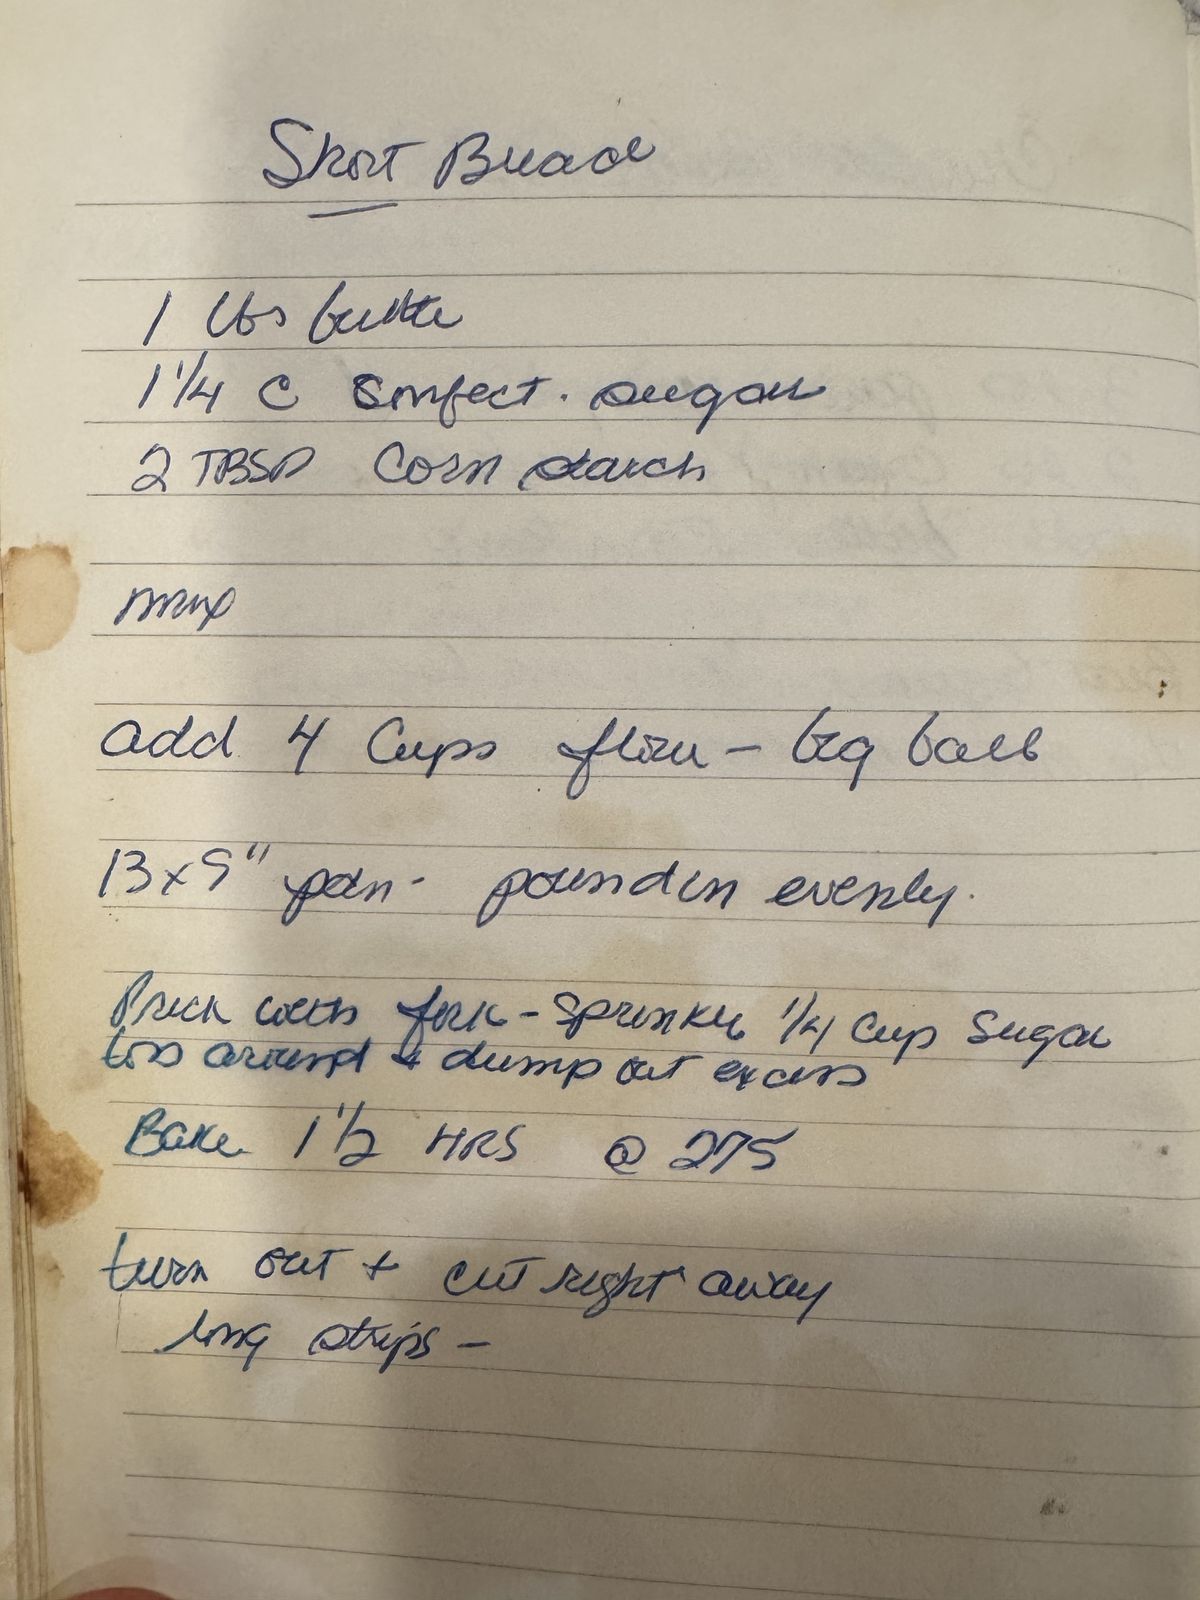 Short Bread
1 lbs butter
1 1/4 C Confect. sugar
2 TBSP Corn starch
mix
add 4 Cups flour - big ball
13x9" pan - pound in evenly.
Prick with fork - Sprinkle 1/4 Cup Sugar
toss around + dump out excess
Bake 1 1/2 HRS @ 275
turn out + cut right away
long strips -